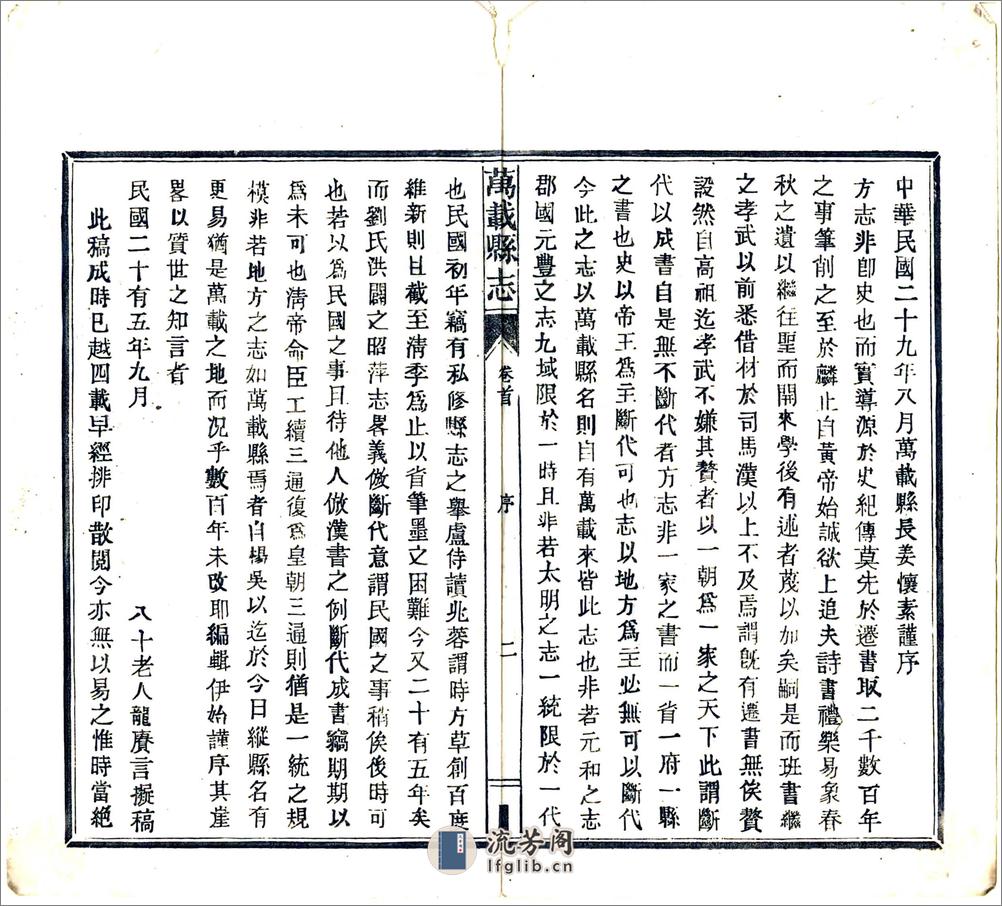 中華民國二十九年八月萬載縣長姜懷素謹序
方志非卽史也而實導源於史紀傳莫先於遷書取二千數百年
之事筆削之至於麟止自黃帝始誠欲上追夫詩書禮樂易象春
秋之遺以繼往聖而開來學後有述者蔑以加矣嗣是而班書繼
之孝武以前悉借材於司馬漢以上不及焉謂旣有遷書無俟贅
設然自高祖迄孝武不嫌其贅者以一朝爲一家之天下此謂斷
代以成書自是無不斷代者方志非一家之書而一省一府一縣
之書也史以帝王爲主斷代可也志以地方爲主必無可以斷代
今此之志以萬載縣名則自有萬載來皆此志也非若元和之志
郡國元豐之志九域限於一時且非若太明之志一統限於一代
萬載縣志
卷首
序
二
也民國初年竊有私修縣志之舉盧侍讀兆蓉謂時方草創百度
維新則且截至淸季爲止以省筆墨之困難今又二十有五年矣
而劉氏洪闢之昭萍志畧義倣斷代意謂民國之事稍俟後時可
也若以爲民國之事且待他人倣漢書之例斷代成書竊期期以
爲未可也淸帝命臣工續三通復爲皇朝三通則猶是一統之規
模非若地方之志如萬載縣焉者自楊吳以迄於今日縱縣名有
更易猶是萬載之地而況乎數百年未改耶編輯伊始謹序其崖
畧以質世之知言者
民國二十有五年九月
八十老人龍賡言擬稿
此稿成時已越四載早經排印散閱今亦無以易之惟時當絕
流芳阁
lfglib.cn